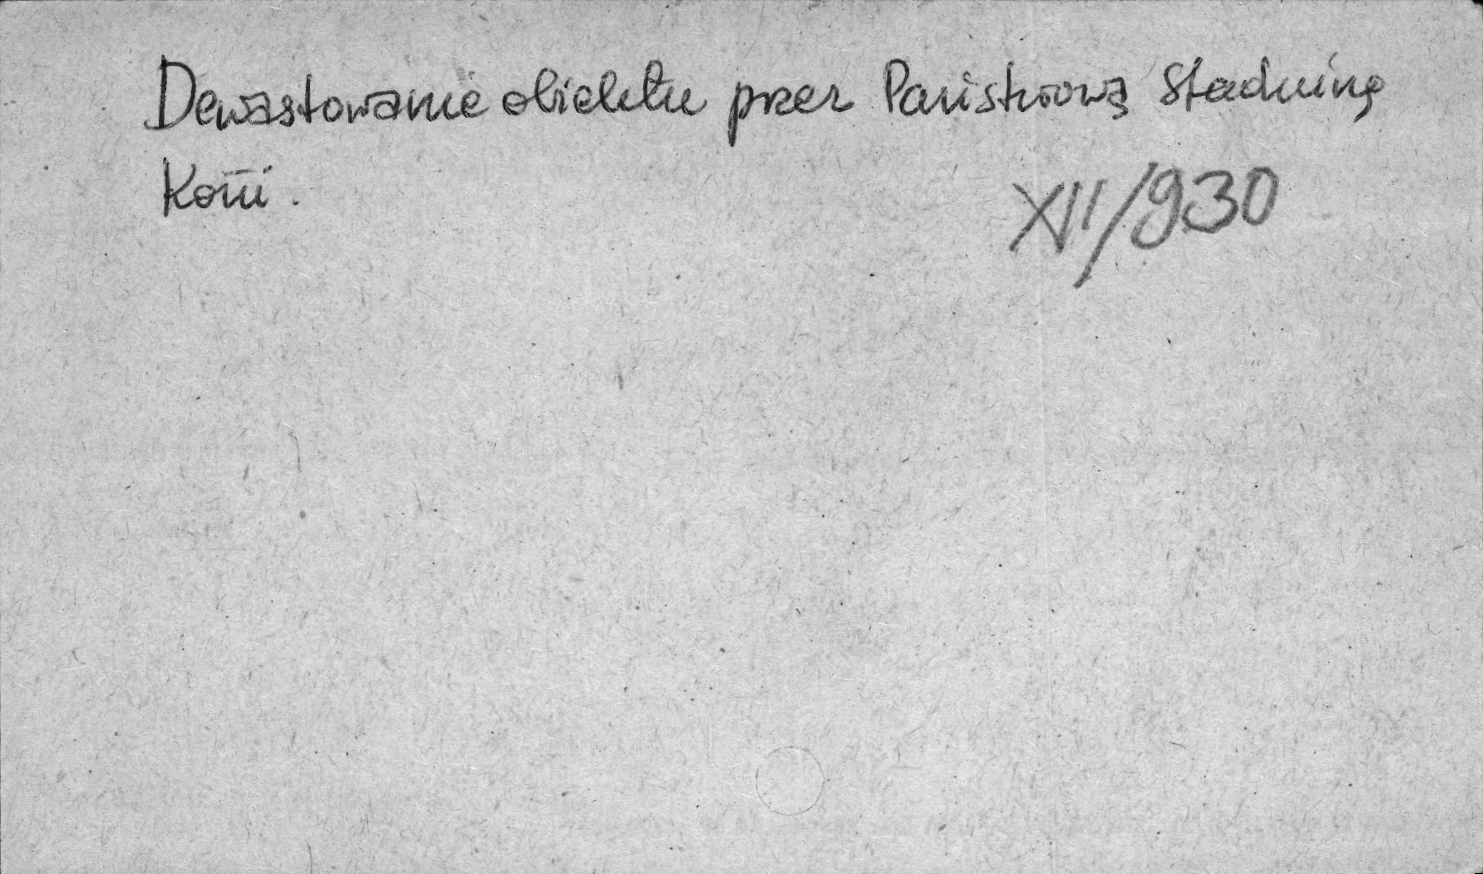 Dewastowanie obiektu przez Państwową Stadninę
Koni.
XII/930